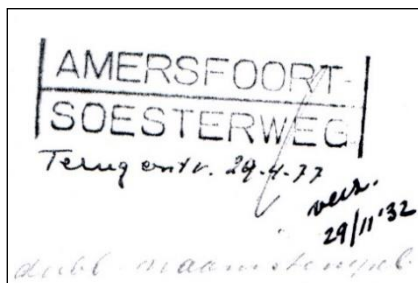 AMERSFOORT-
SOESTERWEG
Terug ontv. 29-4-77
verz.
29/11'32
dubb. naamstempel.